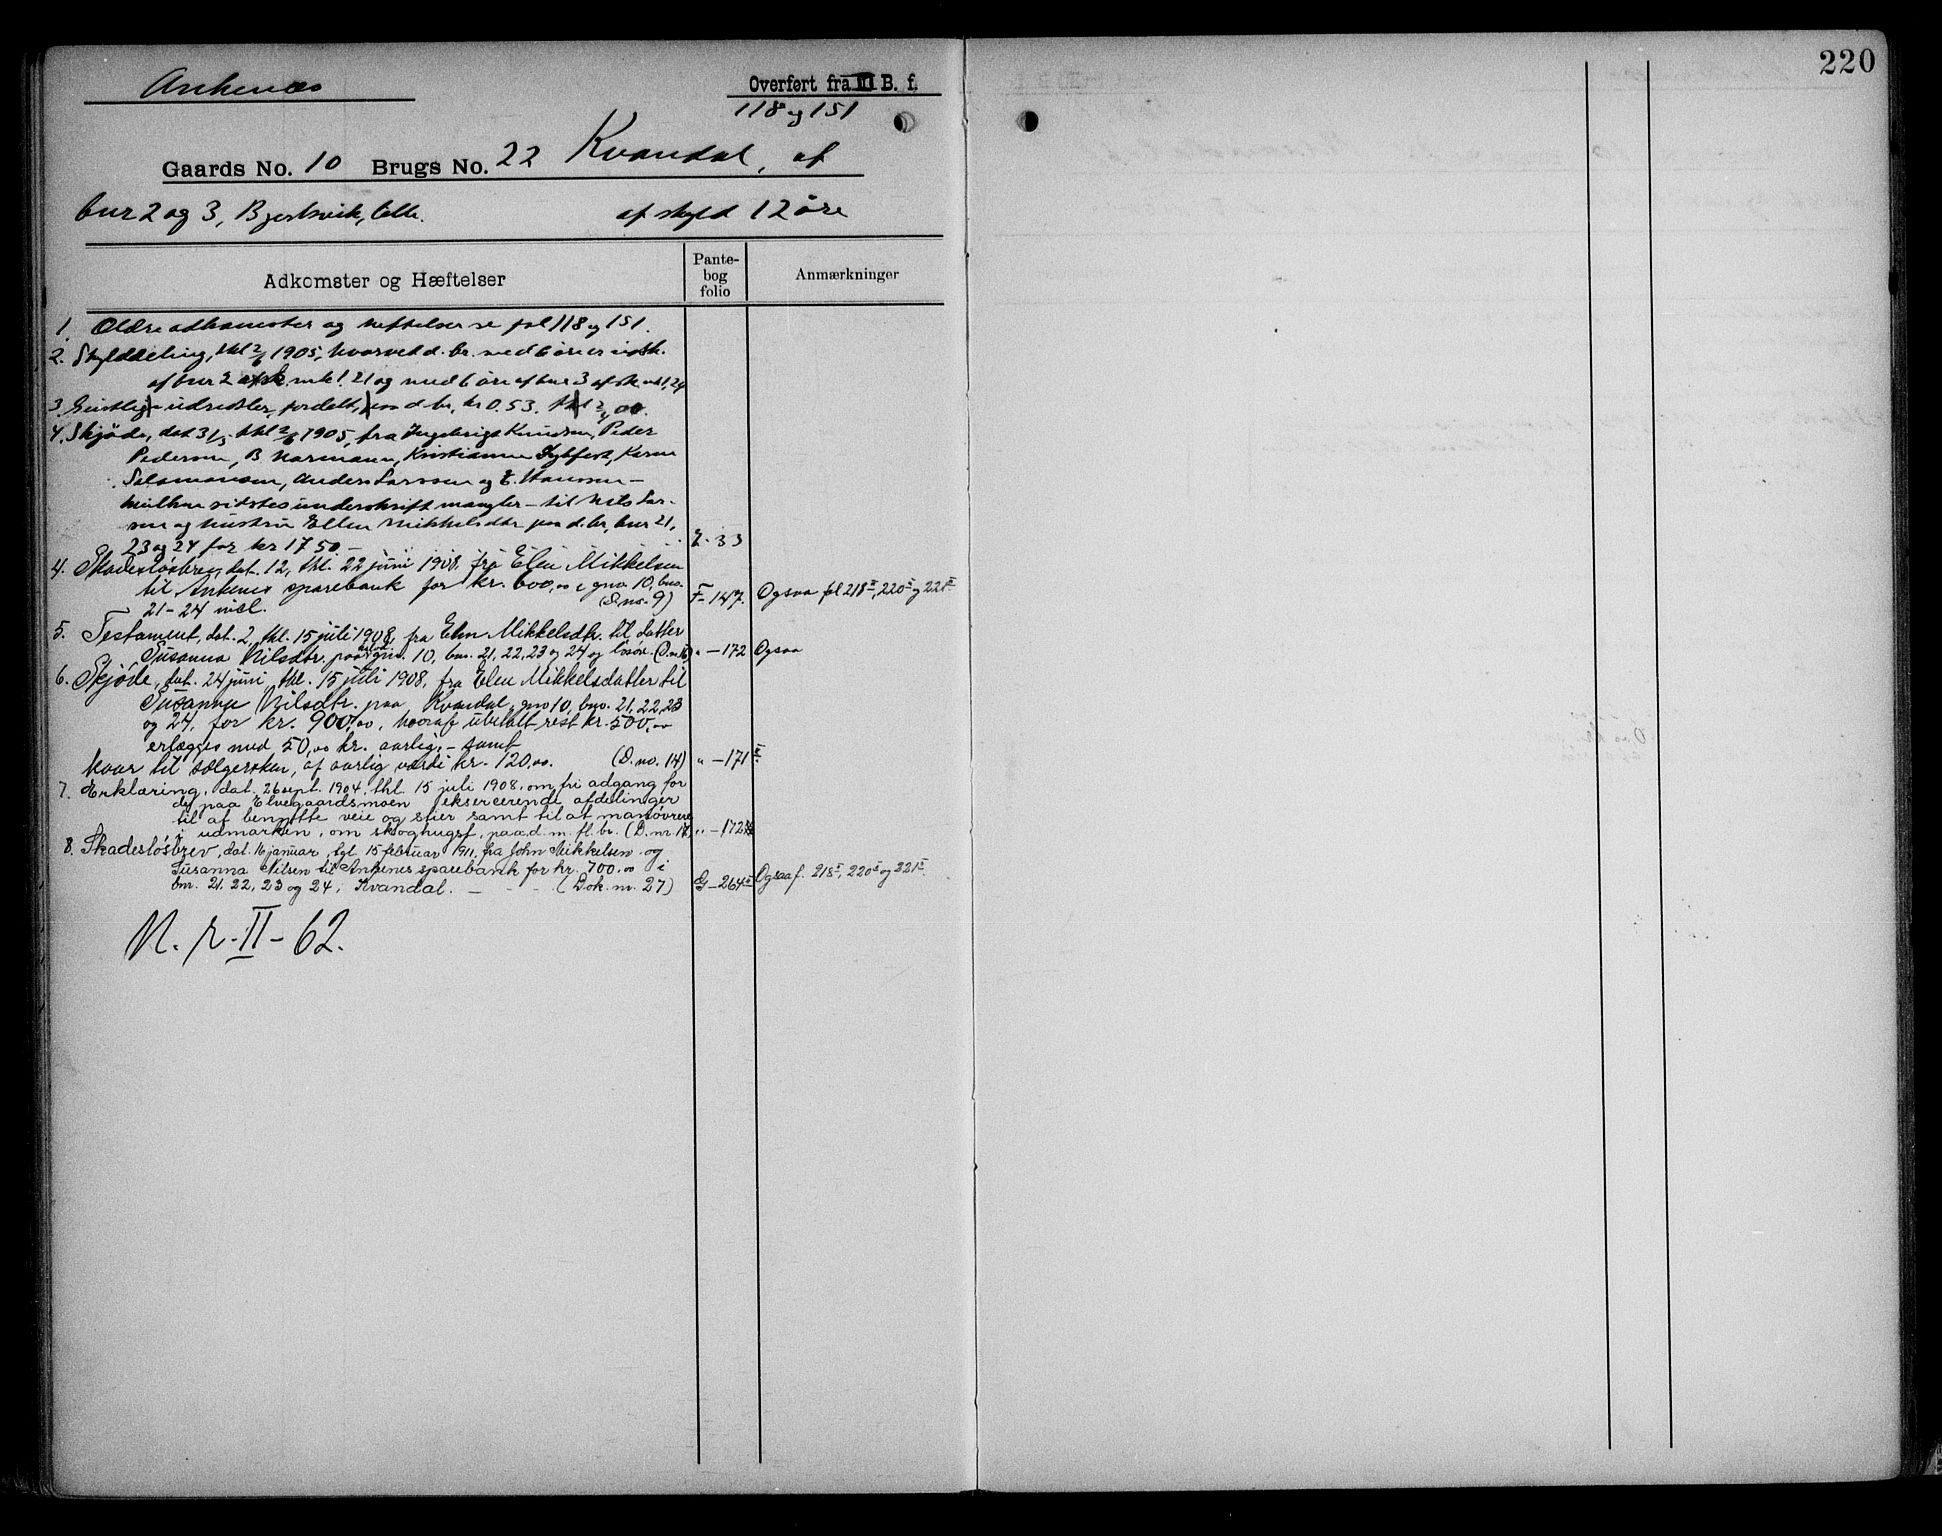 220
Ankenes
Overført fra III B. f.
118 og 151
Gaards No. 10 Brugs No. 22 Kvandal, af
bnr 2 og 3, Bjerkvik, lille. af skyld 12 øre
Adkomster og Hæftelser
Pante-
bog
folio
Anmærkninger
1. Ældre adkomster og heftelser se fol 118 og 151.
2. Skylddeling, thl 2/6 1905, hvorved d. br. med 6 øre er udsk.
af bnr 2 af sk. mk 1.21 og med 6 øre af bnr 3 af sk. mk 1,24
3. Geistlige udredsler, fordelt, paa d. br. kr 0.53.
4. Skjøde, dat 3/5 thl 2/6 1905, fra Ingebrigt Knudsen, Peder
Pedersen, B. Normann, Kristianne Dybfest, Karen
Salamonsen, Anders Larssen og E. Hansen –
hvilken sidstes underskrift mangler – til Nils Lar-
sen og hustru Ellen Mikkelsdtr paa d. br, bnr 21,
23 og 24 for kr 17 50. – E. 33
4. Skadesløsbrev, dat. 12, thl. 22 juni 1908 fra Elen Mikkelsen
til Ankenes sparebank for kr. 600,00 i gno 10, bno.
21 – 24 incl. (D. no. 9) F – 147. Ogsaa fol 218 II, 220 II og 221 II
5. Testament, dat. 2, thl. 15 juli 1908, fra Elen Mikkelsdtr. til datter
Susanna Nilsdtr. paa gno. 10, bno. 21, 22, 23 og 24 og løsøre. „ – 172 Ogsaa
6. Skjøde, dat. 24 juni, thl. 15 juli 1908, fra Elen Mikkelsdatter til
Susanna Nilsdtr. paa Kvandal, gno 10, bno. 21, 22, 23
og 24, for kr. 900,00, hvoraf ubetalt rest kr. 500,00
erlægges med 50,00 kr. aarlig, – samt
kaar til sælgersken, af aarlig værdi kr. 120,00. (D. no. 14) „ – 171 II
7. Erklæring, dat. 26 sept. 1904, thl. 15 juli 1908, om fri adgang for
de paa Elvegaardsmoen ekserserende afdelinger
til at benytte veie og stier samt til at manøvrere
i udmarken, om skoghugst, paa d. m. fl. br. (D. nr. 17) „ – 172
8. Skadesløsbrev, dat. 16 januar, tgl. 15 februar 1911, fra John Mikkelsen og
Susanna Nilsen til Ankenes sparebank for kr. 700,00 i
bnr. 21, 22, 23 og 24, Kvandal. – (Dok. nr. 27) G – 264 II Ogsaa f. 218 II, 220 II og 221 II.
N. r. II – 62.